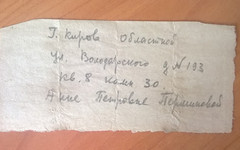 г. Киров Областной
ул. Володарского д №193
кв. 8 комн 30.
Анне Петровне Перминовой